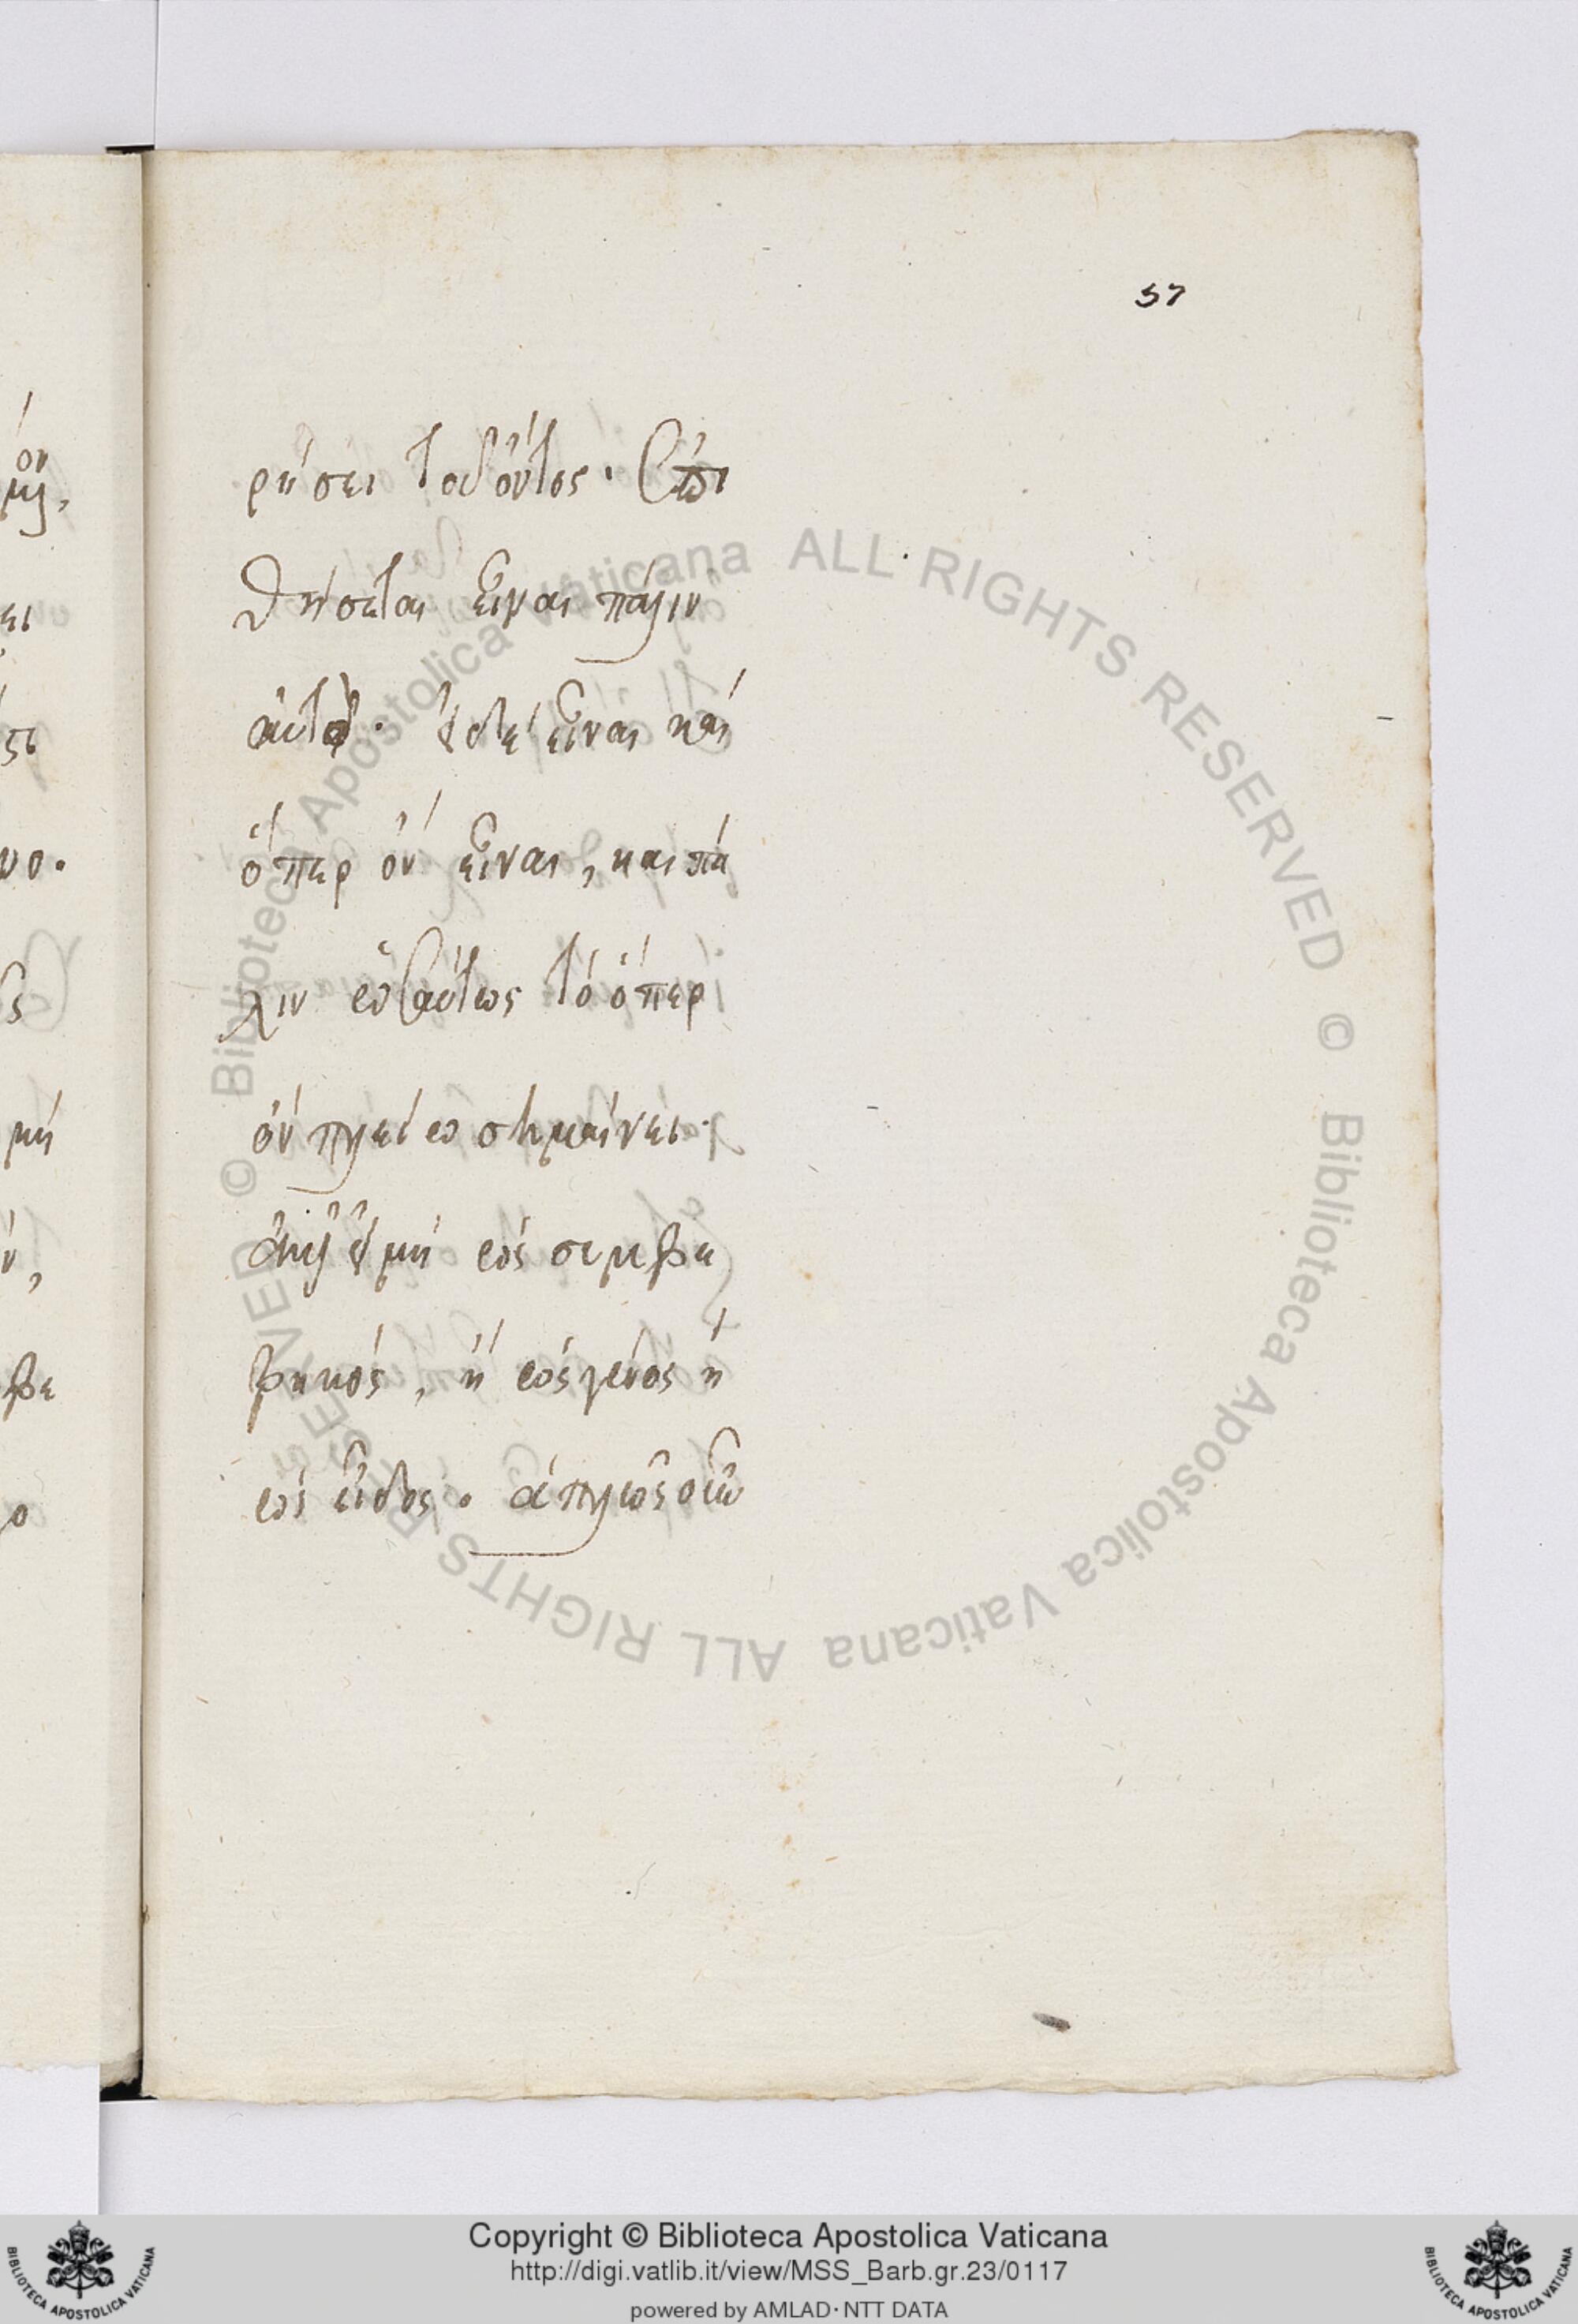 57
ρήσει τοῦ ὄντος. ὑπο
θήσεται εἶναι πάλιν
αὐτό. ὥστε εἶναι καὶ
ὅπερ ὂν εἶναι, και πά
λιν ὡσαύτως τὸ ὅπερ
ὂν πλείω σημαίνει.
ὡς συμβε
βηκός, ἢ ὡς γένος ἢ
ὡς εἶδος. ἁπλῶς οὖν
BIBLIOTECA APOSTOLICA VATICANA
Copyright © Biblioteca Apostolica Vaticana
http://digi.vatlib.it/view/MSS_Barb.gr.23/0117
powered by AMLAD·NTT DATA
BIBLIOTECA APOSTOLICA VATICANA
© Biblioteca Apostolica Vaticana ALL RIGHTS RESERVED
© Biblioteca Apostolica Vaticana ALL RIGHTS RESERVED